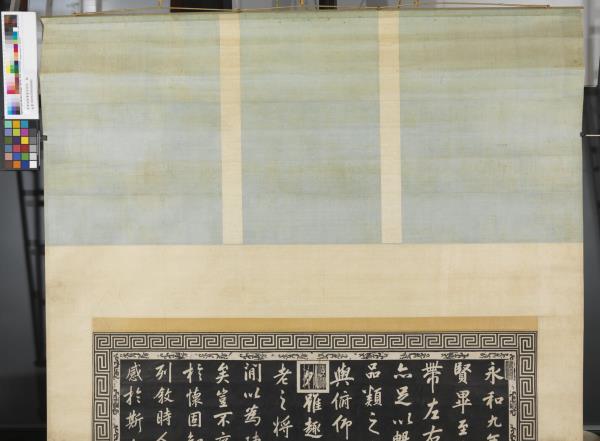 永和九年
賢畢至
帶左右
亦足以暢
品類之
與俯仰
雖趣
老之將
間以為
矣豈不
於懷固
列敘時
感於斯